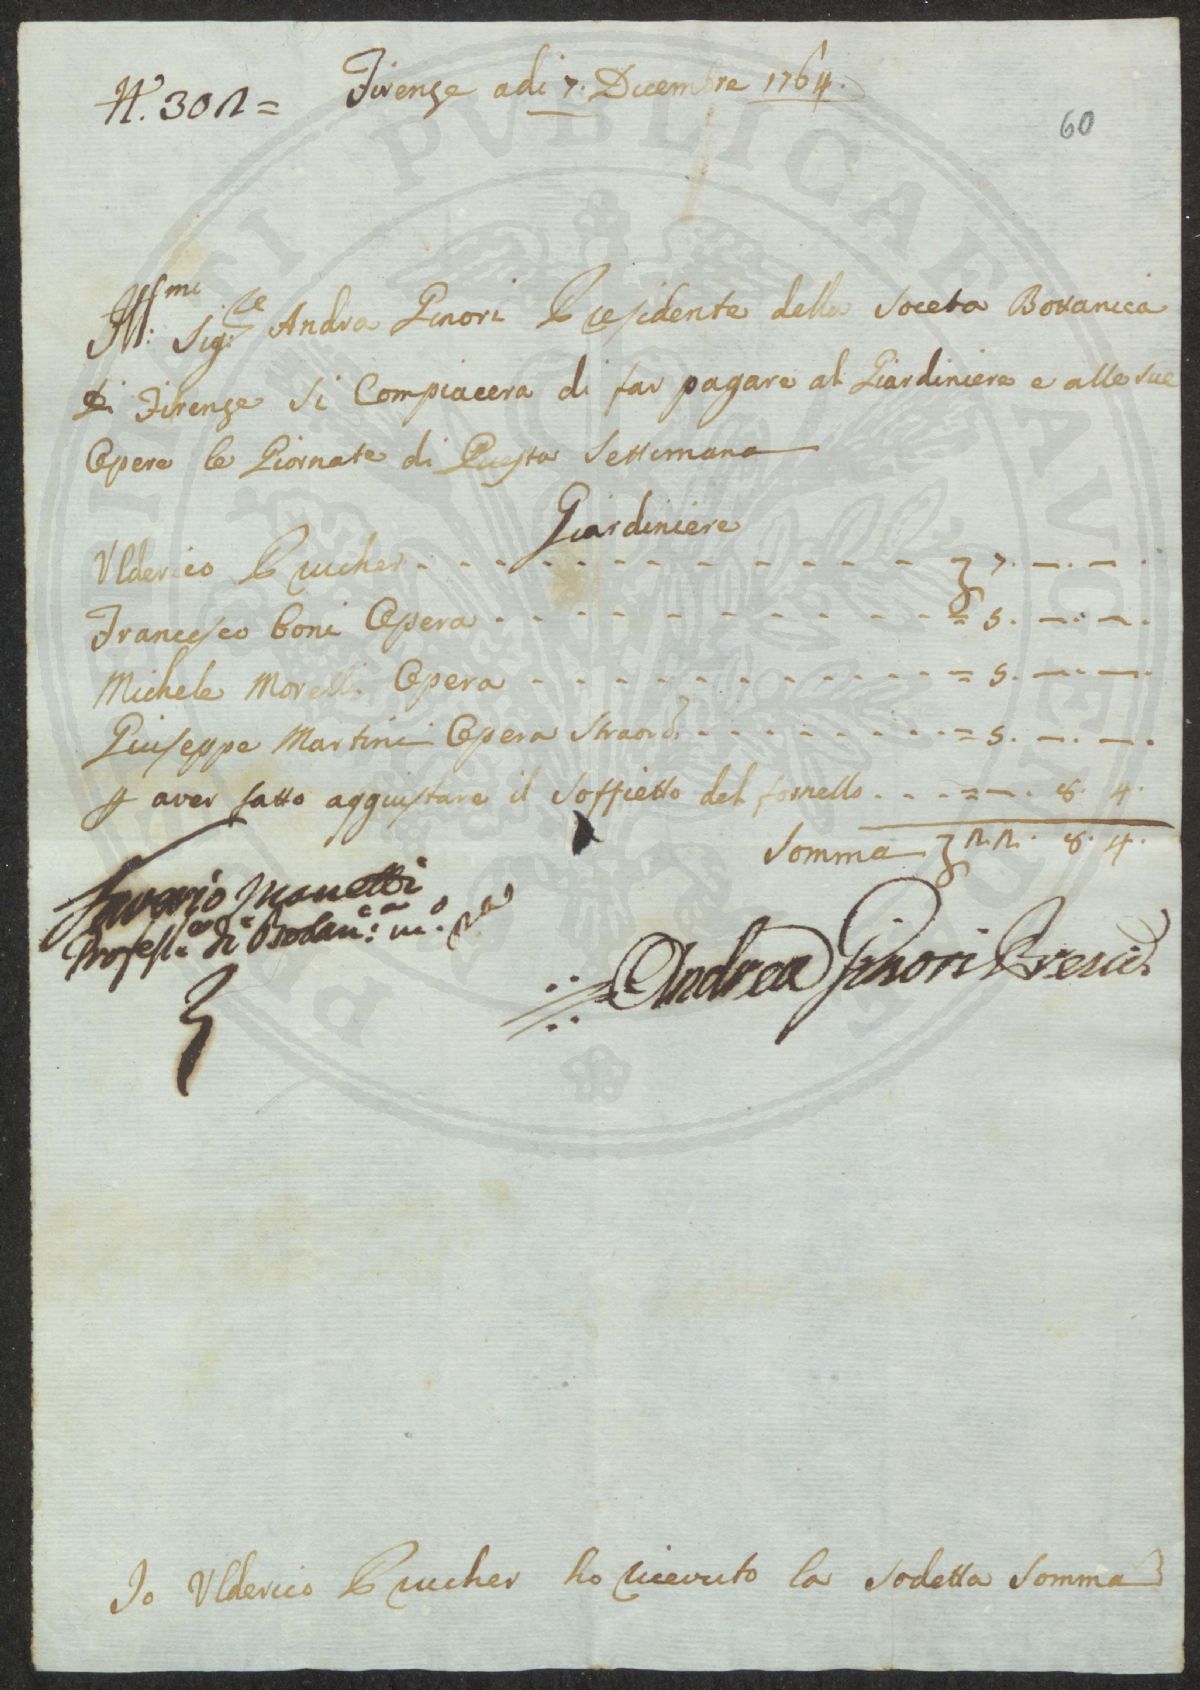 N. 302 =
Firenze adi 7. Dicembre 1764.
60
Ill:mi Sig:re Andra Ginori Presidente della Soceta Botanica
Di Firenze si Compiacera di far pagare al Giardiniere e alle sue
Opere le Giornate di Questa Settimana
Giardiniere
Ulderico Prucher - - - - - - - - - - - - - 7. —. —.
Francesco Boni Opera - - - - - - - - - - - - = 5. —. —.
Michele Morelli Opera - - - - - - - - - - - = 5. —. —.
Giuseppe Martini Opera Straord. - - - - - - - = 5. —. —.
p aver fatto aggiustare il soffietto del fornello - - - = —. 8. 4.
Somma 22. 8. 4.
Saverio Manetti
Profess:e di Botan:ca m:o pa
Andrea Ginori Presid.
Io Ulderico Prucher ho riceuto la sodetta Somma